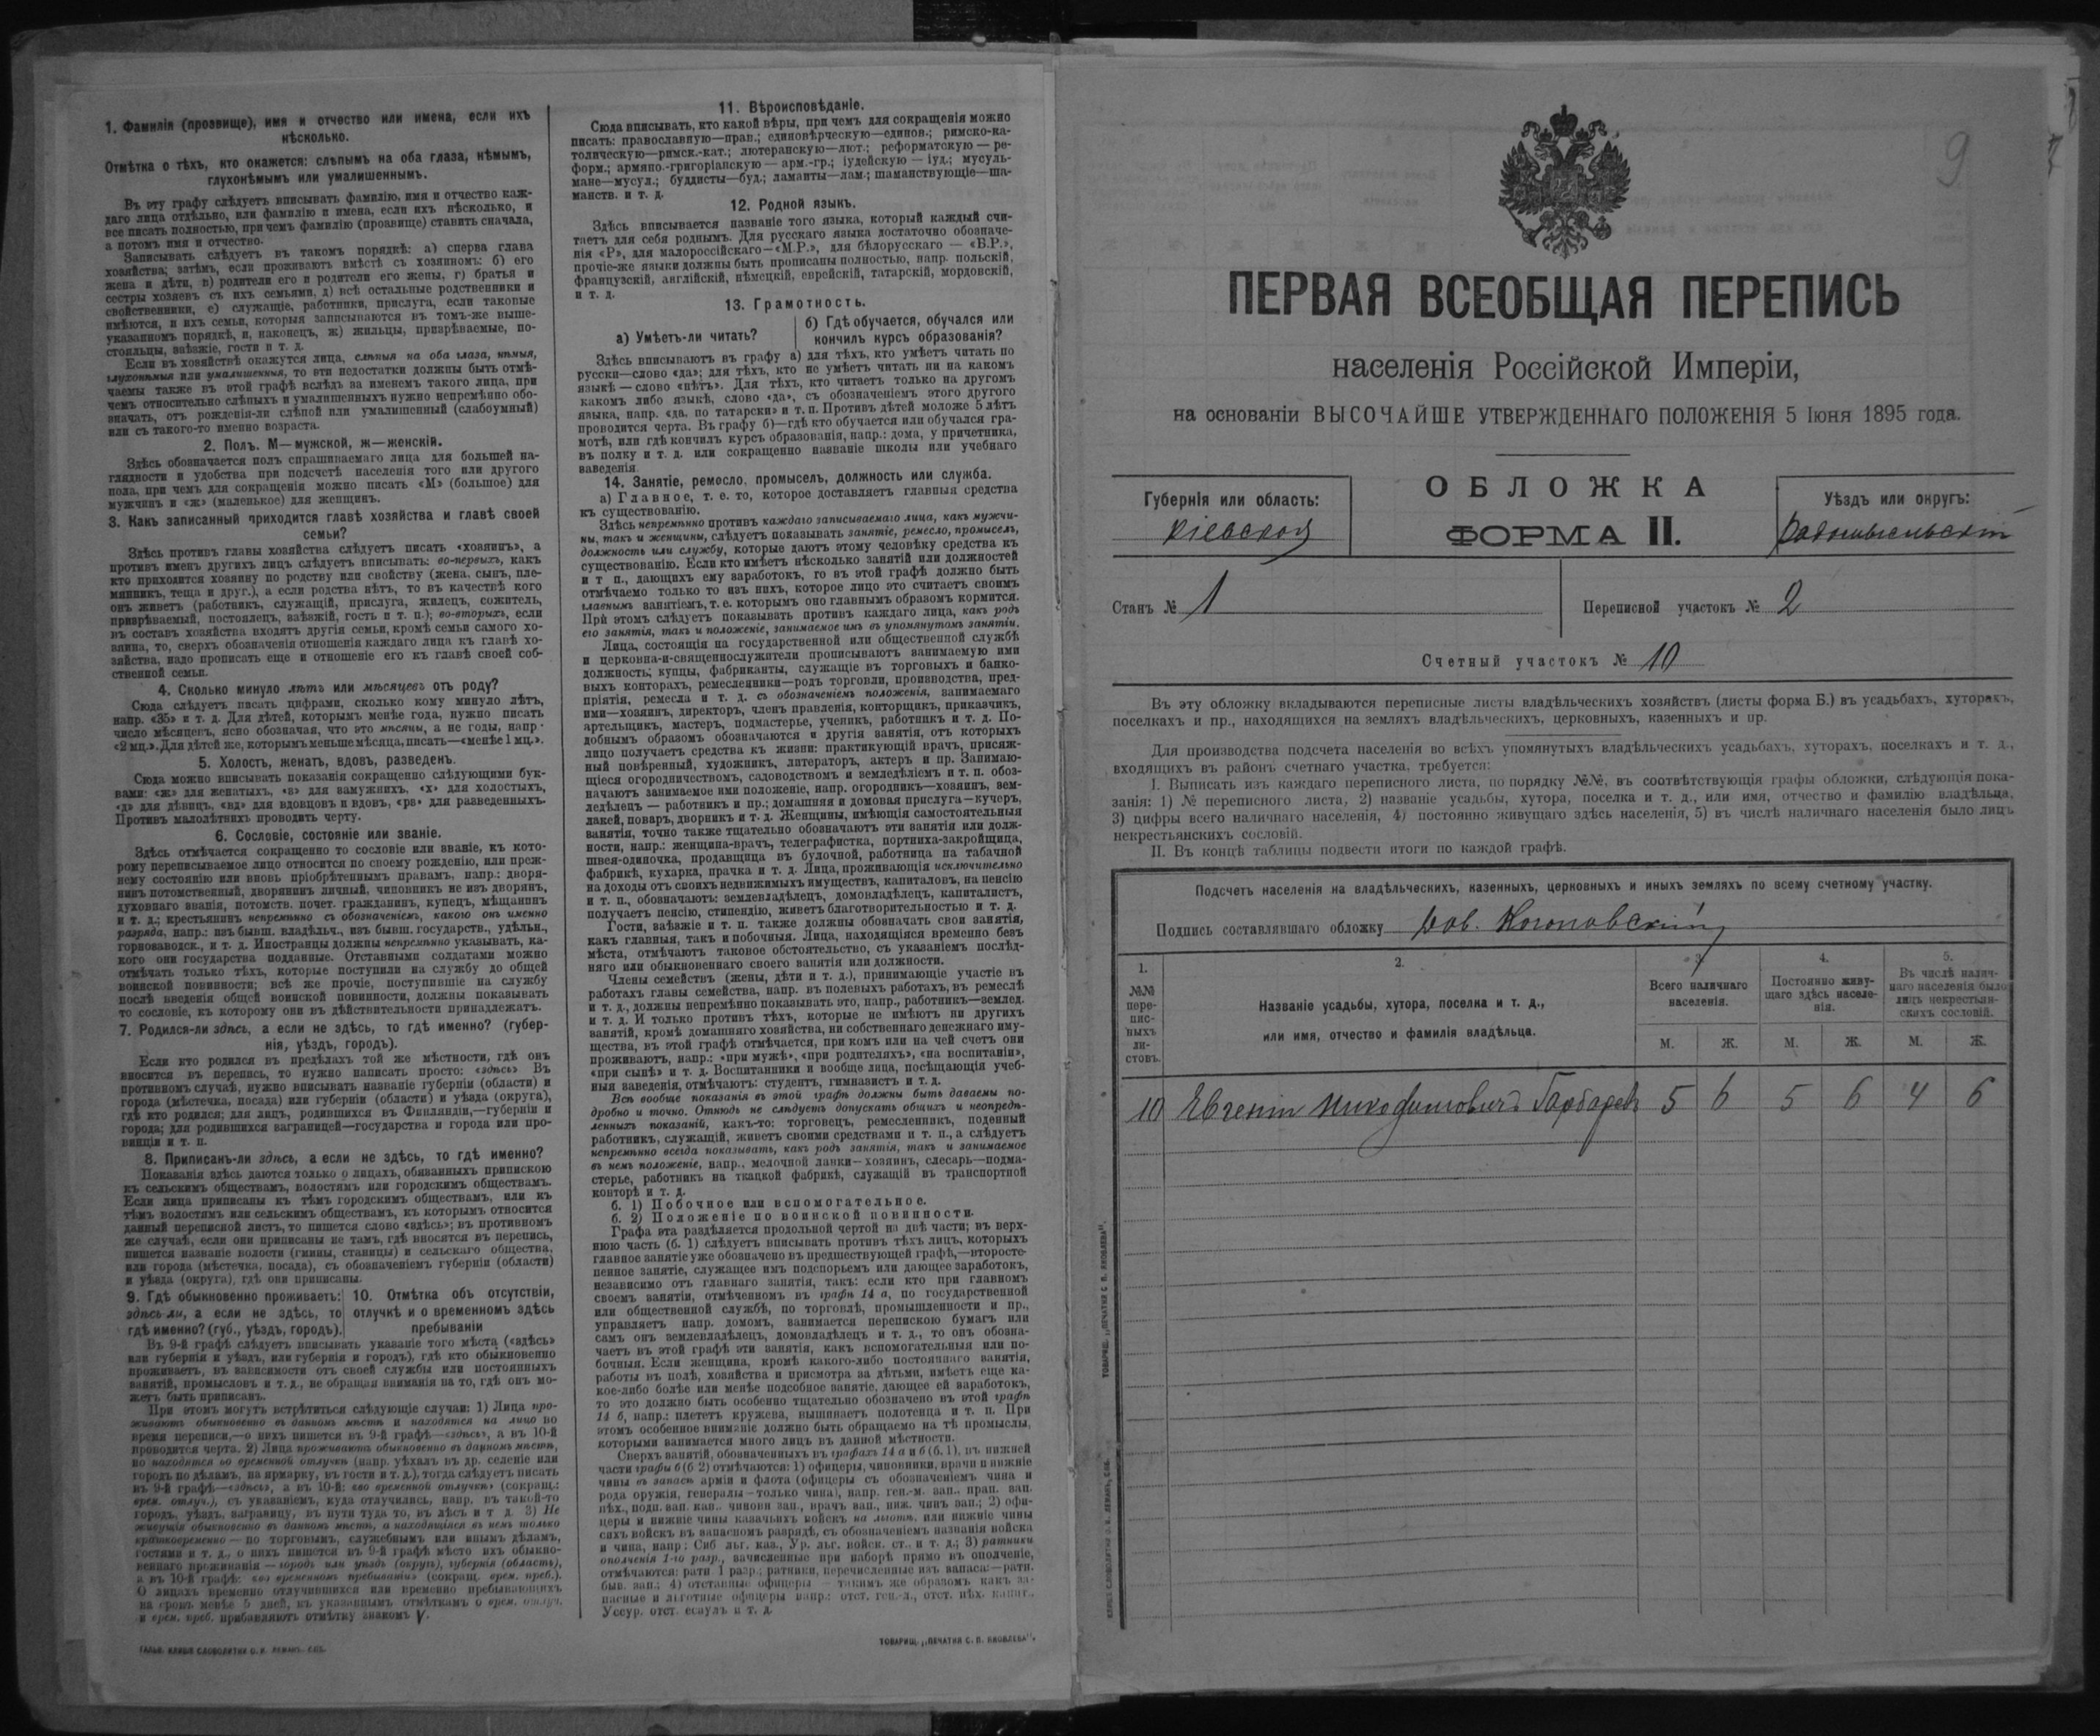 1. Фамилія (прозвище), имя и отчество или имена, если ихъ
нѣсколько.
Отмѣтка о тѣхъ, кто окажется: слѣпымъ на оба глаза, нѣмымъ,
глухонѣмымъ или умалишеннымъ.
Въ эту графу слѣдуетъ вписывать фамилію, имя и отчество каж-
даго лица отдѣльно, или фамилію и имена, если ихъ нѣсколько, и
все писать полностью, при чемъ фамилію (прозвище) ставить сначала,
а потомъ имя и отчество.
Записывать слѣдуетъ въ такомъ порядкѣ: а) сперва глава
хозяйства; затѣмъ, если проживаютъ вмѣстѣ съ хозяиномъ: б) его
жена и дѣти, в) родители его и родители его жены, г) братья и
сестры хозяевъ съ ихъ семьями, д) всѣ остальные родственники и
свойственники, е) служащіе, работники, прислуга, если таковые
имѣются, и ихъ семьи, которыя записываются въ томъ-же выше-
указанномъ порядкѣ, и, наконецъ, ж) жильцы, призрѣваемые, по-
стояльцы, заѣзжіе, гости и т. д.
Если въ хозяйствѣ окажутся лица, слѣпыя на оба глаза, нѣмыя,
глухонѣмыя или умалишенныя, то эти недостатки должны быть отмѣ-
чаемы также въ этой графѣ вслѣдъ за именемъ такого лица, при
чемъ относительно слѣпыхъ и умалишенныхъ нужно непремѣнно обо-
значать, отъ рожденія-ли слѣпой или умалишенный (слабоумный)
или съ такого-то именно возраста.
2. Полъ. М—мужской, ж—женскій.
Здѣсь обозначается полъ спрашиваемаго лица для большей на-
глядности и удобства при подсчетѣ населенія того или другого
пола, при чемъ для сокращенія можно писать «М» (большое) для
мужчинъ и «ж» (маленькое) для женщинъ.
3. Какъ записанный приходится главѣ хозяйства и главѣ своей
семьи?
Здѣсь противъ главы хозяйства слѣдуетъ писать «хозяинъ», а
противъ именъ другихъ лицъ слѣдуетъ вписывать: во-первыхъ, какъ
кто приходится хозяину по родству или свойству (жена, сынъ, пле-
мянникъ, теща и друг.), а если родства нѣтъ, то въ качествѣ кого
онъ живетъ (работникъ, служащій, прислуга, жилецъ, сожитель,
призрѣваемый, постоялецъ, заѣзжій, гость и т. п.); во-вторыхъ, если
въ составъ хозяйства входятъ другія семьи, кромѣ семьи самого хо-
зяина, то, сверхъ обозначенія отношенія каждаго лица къ главѣ хо-
зяйства, надо прописать еще и отношеніе его къ главѣ своей соб-
ственной семьи.
4. Сколько минуло лѣтъ или мѣсяцевъ отъ роду?
Сюда слѣдуетъ писать цифрами, сколько кому минуло лѣтъ,
напр. «35» и т. д. Для дѣтей, которымъ менѣе года, нужно писать
число мѣсяцевъ, ясно обозначая, что это мѣсяцы, а не годы, напр.
«2 мц.». Для дѣтей же, которымъ меньше мѣсяца, писать—«менѣе 1 мц.».
5. Холостъ, женатъ, вдовъ, разведенъ.
Сюда можно вписывать показанія сокращенно слѣдующими бук-
вами: «ж» для женатыхъ, «з» для замужнихъ, «х» для холостыхъ,
«д» для дѣвицъ, «вд» для вдовцовъ и вдовъ, «рв» для разведенныхъ.
Противъ малолѣтнихъ проводить черту.
6. Сословіе, состояніе или званіе.
Здѣсь отмѣчается сокращенно то сословіе или званіе, къ кото-
рому переписываемое лицо относится по своему рожденію, или преж-
нему состоянію или вновь пріобрѣтеннымъ правамъ, напр.: дворя-
нинъ потомственный, дворянинъ личный, чиновникъ не изъ дворянъ,
духовнаго званія, потомств. почет. гражданинъ, купецъ, мѣщанинъ
и т. д.; крестьянинъ непремѣнно съ обозначеніемъ, какого онъ именно
разряда, напр.: изъ бывш. владѣльч., изъ бывш. государств., удѣльн.,
горнозаводск., и т. д. Иностранцы должны непремѣнно указывать, ка-
кого они государства подданные. Отставными солдатами можно
отмѣчать только тѣхъ, которые поступили на службу до общей
воинской повинности; всѣ же прочіе, поступившіе на службу
послѣ введенія общей воинской повинности, должны показывать
то сословіе, къ которому они въ дѣйствительности принадлежатъ.
7. Родился-ли здѣсь, а если не здѣсь, то гдѣ именно? (губер-
нія, уѣздъ, городъ).
Если кто родился въ предѣлахъ той же мѣстности, гдѣ онъ
вносится въ перепись, то нужно написать просто: «здѣсь» Въ
противномъ случаѣ, нужно вписывать названіе губерніи (области) и
города (мѣстечка, посада) или губерніи (области) и уѣзда (округа),
гдѣ кто родился; для лицъ, родившихся въ Финляндіи,—губерніи и
города; для родившихся заграницей—государства и города или про-
винціи и т. п.
8. Приписанъ-ли здѣсь, а если не здѣсь, то гдѣ именно?
Показанія здѣсь даются только о лицахъ, обязанныхъ припискою
къ сельскимъ обществамъ, волостямъ или городскимъ обществамъ.
Если лица приписаны къ тѣмъ городскимъ обществамъ, или къ
тѣмъ волостямъ или сельскимъ обществамъ, къ которымъ относится
данный переписной листъ, то пишется слово «здѣсь»; въ противномъ
же случаѣ, если они приписаны не тамъ, гдѣ вносятся въ перепись,
пишется названіе волости (гмины, станицы) и сельскаго общества,
или города (мѣстечка, посада), съ обозначеніемъ губерніи (области)
и уѣзда (округа), гдѣ они приписаны.
9. Гдѣ обыкновенно проживаетъ:
здѣсь-ли, а если не здѣсь, то
гдѣ именно? (губ., уѣздъ, городъ).
10. Отмѣтка объ отсутствіи,
отлучкѣ и о временномъ здѣсь
пребываніи
Въ 9-й графѣ слѣдуетъ вписывать указаніе того мѣста («здѣсь»
или губернія и уѣздъ, или губернія и городъ), гдѣ кто обыкновенно
проживаетъ, въ зависимости отъ своей службы или постоянныхъ
занятій, промысловъ и т. д., не обращая вниманія на то, гдѣ онъ мо-
жетъ быть приписанъ.
При этомъ могутъ встрѣтиться слѣдующіе случаи: 1) Лица про-
живаютъ обыкновенно въ данномъ мѣстѣ и находятся на лицо во
время переписи,—о нихъ пишется въ 9-й графѣ—«здѣсь», а въ 10-й
проводится черта. 2) Лица проживаютъ обыкновенно въ данномъ мѣстѣ,
но находятся во временной отлучкѣ (напр. уѣхалъ въ др. селеніе или
городъ по дѣламъ, на ярмарку, въ гости и т. д.), тогда слѣдуетъ писать
въ 9-й графѣ—«здѣсь», а въ 10-й: «во временной отлучкѣ» (сокращ.:
врем. отлуч.), съ указаніемъ, куда отлучились, напр. въ такой-то
городъ, уѣздъ, заграницу, въ пути туда то, въ лѣсъ и т д. 3) Не
живущія обыкновенно въ данномъ мѣстѣ, а находящіяся въ немъ только
кратковременно — по торговымъ, служебнымъ или инымъ дѣламъ,
гостями и т. д., о нихъ пишется въ 9-й графѣ мѣсто ихъ обыкно-
веннаго проживанія — городъ или уѣздъ (округъ), губернія (область),
а въ 10-й графѣ: «во временномъ пребываніи» (сокращ. врем. преб.).
О лицахъ временно отлучившихся или временно пребывающихъ
на срокъ менѣе 5 дней, къ указаннымъ отмѣткамъ о врем. отлуч.
и врем. преб. прибавляютъ отмѣтку знакомъ V.
ГАЛЬВ. КЛИШЕ СЛОВОЛИТНИ О. И. ЛЕМАНЪ. СПБ.
11. Вѣроисповѣданіе.
Сюда вписывать, кто какой вѣры, при чемъ для сокращенія можно
писать: православную—прав.; единовѣрческую—единов.; римско-ка-
толическую—римск.-кат.; лютеранскую—лют.; реформатскую — ре-
форм.; армяно.-григоріанскую — арм.-гр.; іудейскую — іуд.; мусуль-
мане—мусул.; буддисты—буд.; ламаиты—лам.; шаманствующіе—ша-
манств. и т. д.
12. Родной языкъ.
Здѣсь вписывается названіе того языка, который каждый счи-
таетъ для себя роднымъ. Для русскаго языка достаточно обозначе-
нія «Р», для малороссійскаго—«М.Р.», для бѣлорусскаго — «Б.Р.»,
прочіе-же языки должны быть прописаны полностью, напр. польскій,
французскій, англійскій, нѣмецкій, еврейскій, татарскій, мордовскій,
и т. д.
13. Грамотность.
а) Умѣетъ-ли читать?
б) Гдѣ обучается, обучался или
кончилъ курсъ образованія?
Здѣсь вписываютъ въ графу а) для тѣхъ, кто умѣетъ читать по
русски—слово «да»; для тѣхъ, кто не умѣетъ читать ни на какомъ
языкѣ — слово «нѣтъ». Для тѣхъ, кто читаетъ только на другомъ
какомъ либо языкѣ, слово «да», съ обозначеніемъ этого другого
языка, напр. «да, по татарски» и т. п. Противъ дѣтей моложе 5 лѣтъ
проводится черта. Въ графу б)—гдѣ кто обучается или обучался гра-
мотѣ, или гдѣ кончилъ курсъ образованія, напр.: дома, у причетника,
въ полку и т. д. или сокращенно названіе школы или учебнаго
заведенія
14. Занятіе, ремесло, промыселъ, должность или служба.
а) Главное, т. е. то, которое доставляетъ главныя средства
къ существованію.
Здѣсь непремѣнно противъ каждаго записываемаго лица, какъ мужчи-
ны, такъ и женщины, слѣдуетъ показывать занятіе, ремесло, промыселъ,
должность или службу, которые даютъ этому человѣку средства къ
существованію. Если кто имѣетъ нѣсколько занятій или должностей
и т п., дающихъ ему заработокъ, то въ этой графѣ должно быть
отмѣчаемо только то изъ нихъ, которое лицо это считаетъ своимъ
главнымъ занятіемъ, т. е. которымъ оно главнымъ образомъ кормится.
При этомъ слѣдуетъ показывать противъ каждаго лица, какъ родъ
его занятія, такъ и положеніе, занимаемое имъ въ упомянутомъ занятіи.
Лица, состоящія на государственной или общественной службѣ
и церковно-и-священнослужители прописываютъ занимаемую ими
должность; купцы, фабриканты, служащіе въ торговыхъ и банко-
выхъ конторахъ, ремесленники—родъ торговли, производства, пред-
пріятія, ремесла и т. д. съ обозначеніемъ положенія, занимаемаго
ими—хозяинъ, директоръ, членъ правленія, конторщикъ, приказчикъ,
артельщикъ, мастеръ, подмастерье, ученикъ, работникъ и т. д. По-
добнымъ образомъ обозначаются и другія занятія, отъ которыхъ
лицо получаетъ средства къ жизни: практикующій врачъ, присяж-
ный повѣренный, художникъ, литераторъ, актеръ и пр. Занимаю-
щіеся огородничествомъ, садоводствомъ и земледѣліемъ и т. п. обоз-
начаютъ занимаемое ими положеніе, напр. огородникъ—хозяинъ, зем-
ледѣлецъ — работникъ и пр.; домашняя и домовая прислуга—кучеръ,
лакей, поваръ, дворникъ и т. д. Женщины, имѣющія самостоятельныя
занятія, точно также тщательно обозначаютъ эти занятія или долж-
ности, напр.: женщина-врачъ, телеграфистка, портниха-закройщица,
швея-одиночка, продавщица въ булочной, работница на табачной
фабрикѣ, кухарка, прачка и т. д. Лица, проживающія исключительно
на доходы отъ своихъ недвижимыхъ имуществъ, капиталовъ, на пенсію
и т. п., обозначаютъ: землевладѣлецъ, домовладѣлецъ, капиталистъ,
получаетъ пенсію, стипендію, живетъ благотворительностью и т. д.
Гости, заѣзжіе и т. п. также должны обозначать свои занятія,
какъ главныя, такъ и побочныя. Лица, находящіяся временно безъ
мѣста, отмѣчаютъ таковое обстоятельство, съ указаніемъ послѣд-
няго или обыкновеннаго своего занятія или должности.
Члены семействъ (жены, дѣти и т. д.), принимающіе участіе въ
работахъ главы семейства, напр. въ полевыхъ работахъ, въ ремеслѣ
и т. д., должны непремѣнно показывать это, напр., работникъ—землед.
и т. д. И только противъ тѣхъ, которые не имѣютъ ни другихъ
занятій, кромѣ домашняго хозяйства, ни собственнаго денежнаго иму-
щества, въ этой графѣ отмѣчается, при комъ или на чей счетъ они
проживаютъ, напр.: «при мужѣ», «при родителяхъ», «на воспитаніи»,
«при сынѣ» и т. д. Воспитанники и вообще лица, посѣщающія учеб-
ныя заведенія, отмѣчаютъ: студентъ, гимназистъ и т. д.
Всѣ вообще показанія въ этой графѣ должны быть даваемы по-
дробно и точно. Отнюдь не слѣдуетъ допускать общихъ и неопредѣ-
ленныхъ показаній, какъ-то: торговецъ, ремесленникъ, поденный
работникъ, служащій, живетъ своими средствами и т. п., а слѣдуетъ
непремѣнно всегда показывать, какъ родъ занятія, такъ и занимаемое
въ немъ положеніе, напр., мелочной лавки—хозяинъ, слесарь—подма-
стерье, работникъ на ткацкой фабрикѣ, служащій въ транспортной
конторѣ и т. д.
б. 1) Побочное или вспомогательное.
б. 2) Положеніе по воинской повинности.
Графа эта раздѣляется продольной чертой на двѣ части; въ верх-
нюю часть (б. 1) слѣдуетъ вписывать противъ тѣхъ лицъ, которыхъ
главное занятіе уже обозначено въ предшествующей графѣ,—второсте-
пенное занятіе, служащее имъ подспорьемъ или дающее заработокъ,
независимо отъ главнаго занятія, такъ: если кто при главномъ
своемъ занятіи, отмѣченномъ въ графѣ 14 а, по государственной
или общественной службѣ, по торговлѣ, промышленности и пр.,
управляетъ напр. домомъ, занимается перепискою бумагъ или
самъ онъ землевладѣлецъ, домовладѣлецъ и т. д., то онъ обозна-
чаетъ въ этой графѣ эти занятія, какъ вспомогательныя или по-
бочныя. Если женщина, кромѣ какого-либо постояннаго занятія,
работы въ полѣ, хозяйства и присмотра за дѣтьми, имѣетъ еще ка-
кое-либо болѣе или менѣе подсобное занятіе, дающее ей заработокъ,
то это должно быть особенно тщательно обозначено въ этой графѣ
14 б, напр.: плететъ кружева, вышиваетъ полотенца и т. п. При
этомъ особенное вниманіе должно быть обращаемо на тѣ промыслы,
которыми занимается много лицъ въ данной мѣстности.
Сверхъ занятій, обозначенныхъ въ графахъ 14 а и б (б. 1), въ нижней
части графы б (б 2) отмѣчаются: 1) офицеры, чиновники, врачи и нижніе
чины въ запасѣ арміи и флота (офицеры съ обозначеніемъ чина и
рода оружія, генералы—только чина), напр. ген.-м. зап., прап. зап.
пѣх., подп. зап. кав., чиновн зап., врачъ зап., ниж. чинъ зап.; 2) офи-
церы и нижніе чины казачьихъ войскъ на льготѣ, или нижніе чины
сихъ войскъ въ запасномъ разрядѣ, съ обозначеніемъ названія войска
и чина, напр: Сиб льг. каз., Ур. льг. войск. ст., и т. д.; 3) ратники
ополченія 1-го разр., зачисленные при наборѣ прямо въ ополченіе,
отмѣчаются: ратн. 1 разр.; ратники, перечисленные изъ запаса:—ратн.
быв. зап.; 4) отставные офицеры — такимъ же образомъ какъ за-
пасные и льготные офицеры напр.: отст. ген.-л., отст. пѣх. капит.,
Уссур. отст. есаулъ и т. д.
ТОВАРИЩ. „ПЕЧАТНЯ С. П. ЯКОВЛЕВА".
9
ПЕРВАЯ ВСЕОБЩАЯ ПЕРЕПИСЬ
населенія Россійской Имперіи,
на основаніи ВЫСОЧАЙШЕ УТВЕРЖДЕННАГО ПОЛОЖЕНІЯ 5 Іюня 1895 года.
Губернія или область:
Кіевская
ОБЛОЖКА
ФОРМА II.
Уѣздъ или округъ:
Радомысльскій
Станъ № 1
Переписной участокъ № 2
Счетный участокъ № 10
Въ эту обложку вкладываются переписные листы владѣльческихъ хозяйствъ (листы форма Б.) въ усадьбахъ, хуторахъ,
поселкахъ и пр., находящихся на земляхъ владѣльческихъ, церковныхъ, казенныхъ и пр.
Для производства подсчета населенія во всѣхъ упомянутыхъ владѣльческихъ усадьбахъ, хуторахъ, поселкахъ и т. д.,
входящихъ въ районъ счетнаго участка, требуется:
I. Выписать изъ каждаго переписного листа, по порядку №№, въ соотвѣтствующія графы обложки, слѣдующія пока-
занія: 1) № переписного листа, 2) названіе усадьбы, хутора, поселка и т. д., или имя, отчество и фамилію владѣльца,
3) цифры всего наличнаго населенія, 4) постоянно живущаго здѣсь населенія, 5) въ числѣ наличнаго населенія было лицъ
некрестьянскихъ сословій.
II. Въ концѣ таблицы подвести итоги по каждой графѣ.
Подсчетъ населенія на владѣльческихъ, казенныхъ, церковныхъ и иныхъ земляхъ по всему счетному участку.
Подпись составлявшаго обложку
1.
№№
пере-
пис-
ныхъ
ли-
стовъ.
2.
Названіе усадьбы, хутора, поселка и т. д.,
или имя, отчество и фамилія владѣльца.
3.
Всего наличнаго
населенія.
М. Ж.
4.
Постоянно живу-
щаго здѣсь населе-
нія.
М. Ж.
5.
Въ числѣ налич-
наго населенія было
лицъ некрестьян-
скихъ сословій.
М. Ж.
10 Евгеній Никодимовичъ 5 6 5 6 4 6
ТОВАРИЩ. „ПЕЧАТНЯ С. П. ЯКОВЛЕВА".
КЛИШЕ СЛОВОЛИТНИ О. И. ЛЕМАНЪ, СПБ.